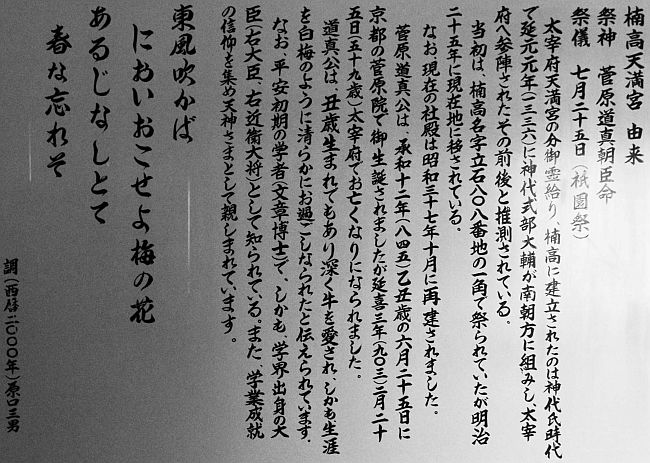 楠高天満宮 由来
祭神 菅原道真朝臣命
祭儀 七月二十五日(祇園祭)
太宰府天満宮の分御霊給り、楠高に建立されたのは神代氏時代
で延元元年(一三三六)に神代式部大輔が南朝方に組みし、太宰
府へ参陣されたその前後と推測されている。
当初は、楠高名字立石八〇八番地の一角で祭られていたが明治
二十五年に現在地に移されている。
なお現在の社殿は昭和三十七年十月に再建されました。
菅原道真公は、承和十二年(八四五)乙丑歳の六月二十五日に
京都の菅原院で御生誕されましたが延喜三年(九〇三)二月二十
五日(五十九歳)太宰府でお亡くなりになられました。
道真公は、丑歳生まれでもあり深く牛を愛され、しかも生涯
を白梅のように清らかにお過ごしなられたと伝えられています。
なお、平安初期の学者(文章博士)で、しかも、学界出身の大
臣(右大臣、右近衛大将)として知られている。また、学業成就
の信仰を集め天神さまとして親しまれています。
東風吹かば
においおこせよ梅の花
あるじなしとて
春な忘れそ
調(西暦二〇〇〇年)原口三男